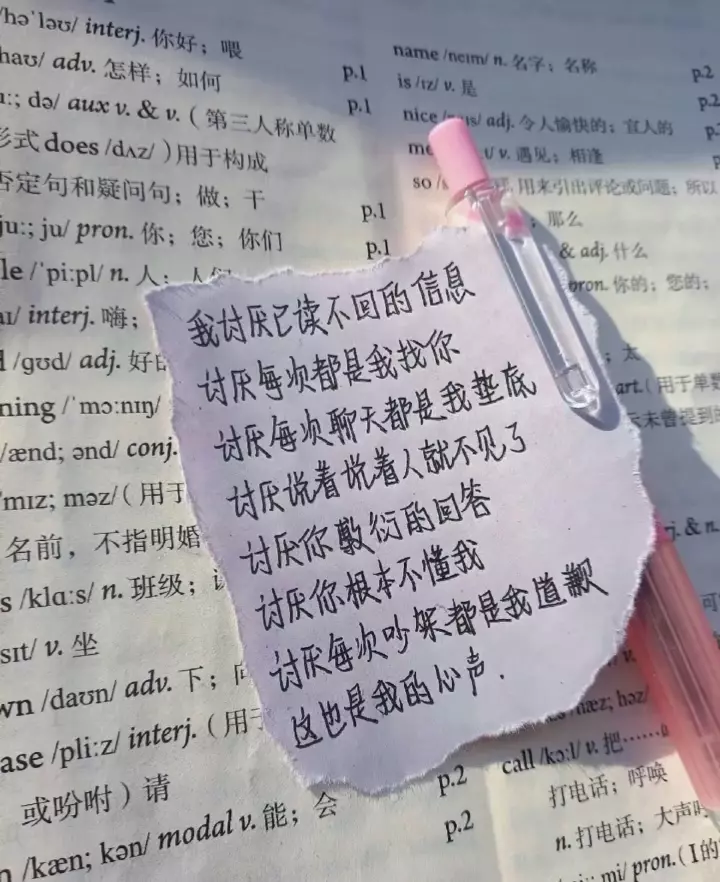 /həˈləʊ/ interj. 你好；喂
haʊ/ adv. 怎样；如何
p.1
uː; də/ aux v. & v.（第三人称单数
p.1
形式 does /dʌz/）用于构成
否定句和疑问句；做；干
p.1
juː; ju/ pron. 你；您；你们
p.1
le /ˈpiːpl/ n. 人；人们
aɪ/ interj. 嗨；
d /ɡʊd/ adj. 好的
ning /ˈmɔːnɪŋ/
/ænd; ənd/ conj.
/mɪz; məz/（用于
名前，不指明婚
s /klɑːs/ n. 班级；
sɪt/ v. 坐
wn /daʊn/ adv. 下；向
ase /pliːz/ interj.（用于
或吩咐）请
p.2
n /kæn; kən/ modal v. 能；会
p.2
name /neɪm/ n. 名字；名称
p.2
is /ɪz/ v. 是
p.2
nice /naɪs/ adj. 令人愉快的；宜人的
p.2
v. 遇见；相逢
so 用来引出评论或问题；所以
；那么
& adj. 什么
pron. 你的；您的；
；太
art.（用于单数
未曾提到的
我讨厌已读不回的信息
讨厌每次都是我找你
讨厌每次聊天都是我垫底
讨厌说着说着人就不见了
讨厌你敷衍的回答
讨厌你根本不懂我
讨厌每次吵架都是我道歉
这也是我的心声.
j. & n.
hæz; həz/
call /kɔːl/ v. 把……
打电话；呼唤
n. 打电话；大声
mi/ pron.（I的